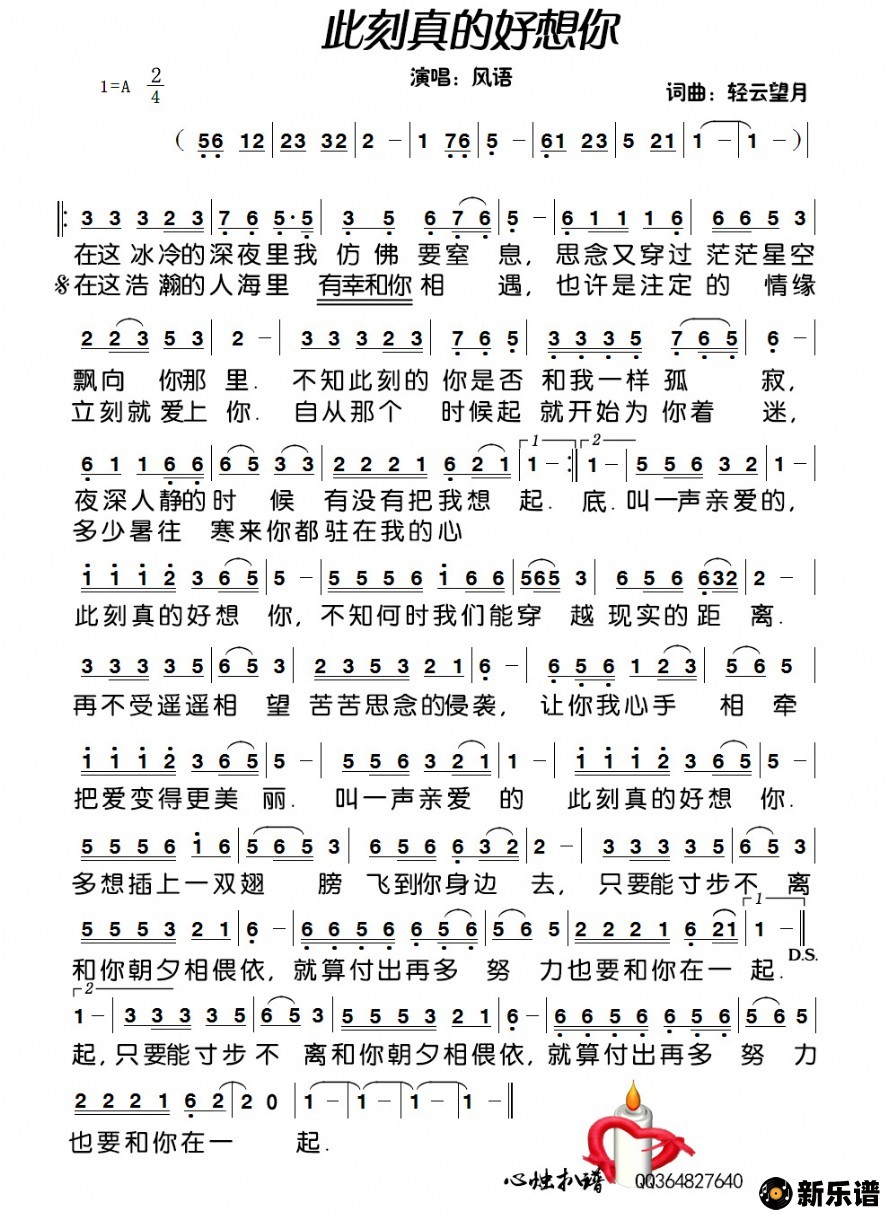 此刻真的好想你
演唱：风语
1=A 2/4
词曲：轻云望月
( 56 12 | 23 32 | 2 － | 1 76 | 5 － | 61 23 | 5 21 | 1 － | 1 － ) |
|: 3 3 3 2 3 | 7 6 5·5 | 3 5 6 7 6 | 5 － | 6 1 1 1 6 | 6 6 5 3 |
在这 冰冷的深夜里我 仿 佛 要窒 息， 思念又穿过 茫茫星空
𝄋在这浩 瀚的人海里 有幸和你相 遇，也许是注定的 情缘
2 2 3 5 3 | 2 － | 3 3 3 2 3 | 7 6 5 | 3 3 3 5 | 7 6 5 | 6 － |
飘向 你那 里. 不知此刻的 你是否 和我一样 孤 寂，
立刻就 爱上 你. 自从那个 时候起 就开始为 你着 迷，
6 1 1 6 6 | 6 5 3 3 | 2 2 2 1 6 2 1 | 1 － :| 1 － | 5 5 6 3 2 | 1 － |
1
2
夜深人静的时 候 有没有把我想 起. 底.叫一声亲爱的，
多少暑往 寒来你都驻在我的心
1 1 1 2 3 6 5 | 5 － | 5 5 5 6 1 6 6 | 565 3 | 6 5 6 632 | 2 － |
此刻真的好想 你，不知何时我们能穿 越 现实的距 离.
3 3 3 3 5 | 6 5 3 | 2 3 5 3 2 1 | 6 － | 6 5 6 1 2 3 | 5 6 5 |
再不受遥遥相 望 苦苦思念的侵袭， 让你我心手 相 牵
1 1 1 2 3 6 5 | 5 － | 5 5 6 3 2 1 | 1 － | 1 1 1 2 3 6 5 | 5 － |
把爱变得更美 丽. 叫一声亲爱 的 此刻真的好想 你.
5 5 5 6 1 6 | 5 6 5 3 | 6 5 6 6 3 2 | 2 － | 3 3 3 3 5 | 6 5 3 |
多想插上一双翅 膀 飞到你身边 去， 只要能寸步不 离
5 5 5 3 2 1 | 6 － | 6 6 5 6 6 5 6 | 5 6 5 | 2 2 2 1 6 21 | 1 － ||
1
D.S.
和你朝夕相偎依，就算付出再多 努 力也要和你在一 起.
2
1 － | 3 3 3 3 5 | 6 5 3 | 5 5 5 3 2 1 | 6 － | 6 6 5 6 6 5 6 | 5 6 5 |
起，只要能寸步不 离和你朝夕相偎依，就算付出再多 努 力
2 2 2 1 6 2 | 2 0 | 1 － | 1 － | 1 － | 1 － ||
也要和你在一 起.
心烛扒谱 QQ364827640
新乐谱